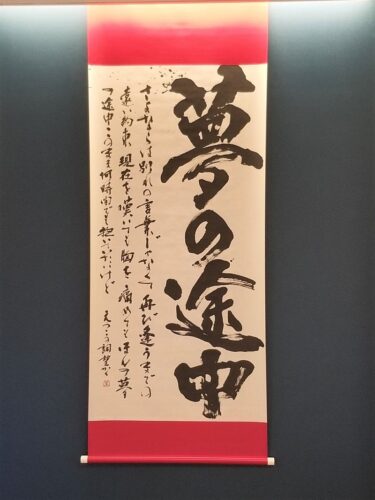 夢の途中
さよならは別れの言葉じゃなくて 再び逢うまでの
遠い約束 現在を嘆いても 胸を痛めても ほんの夢
の途中 このまま何時間でも抱いていたいけど